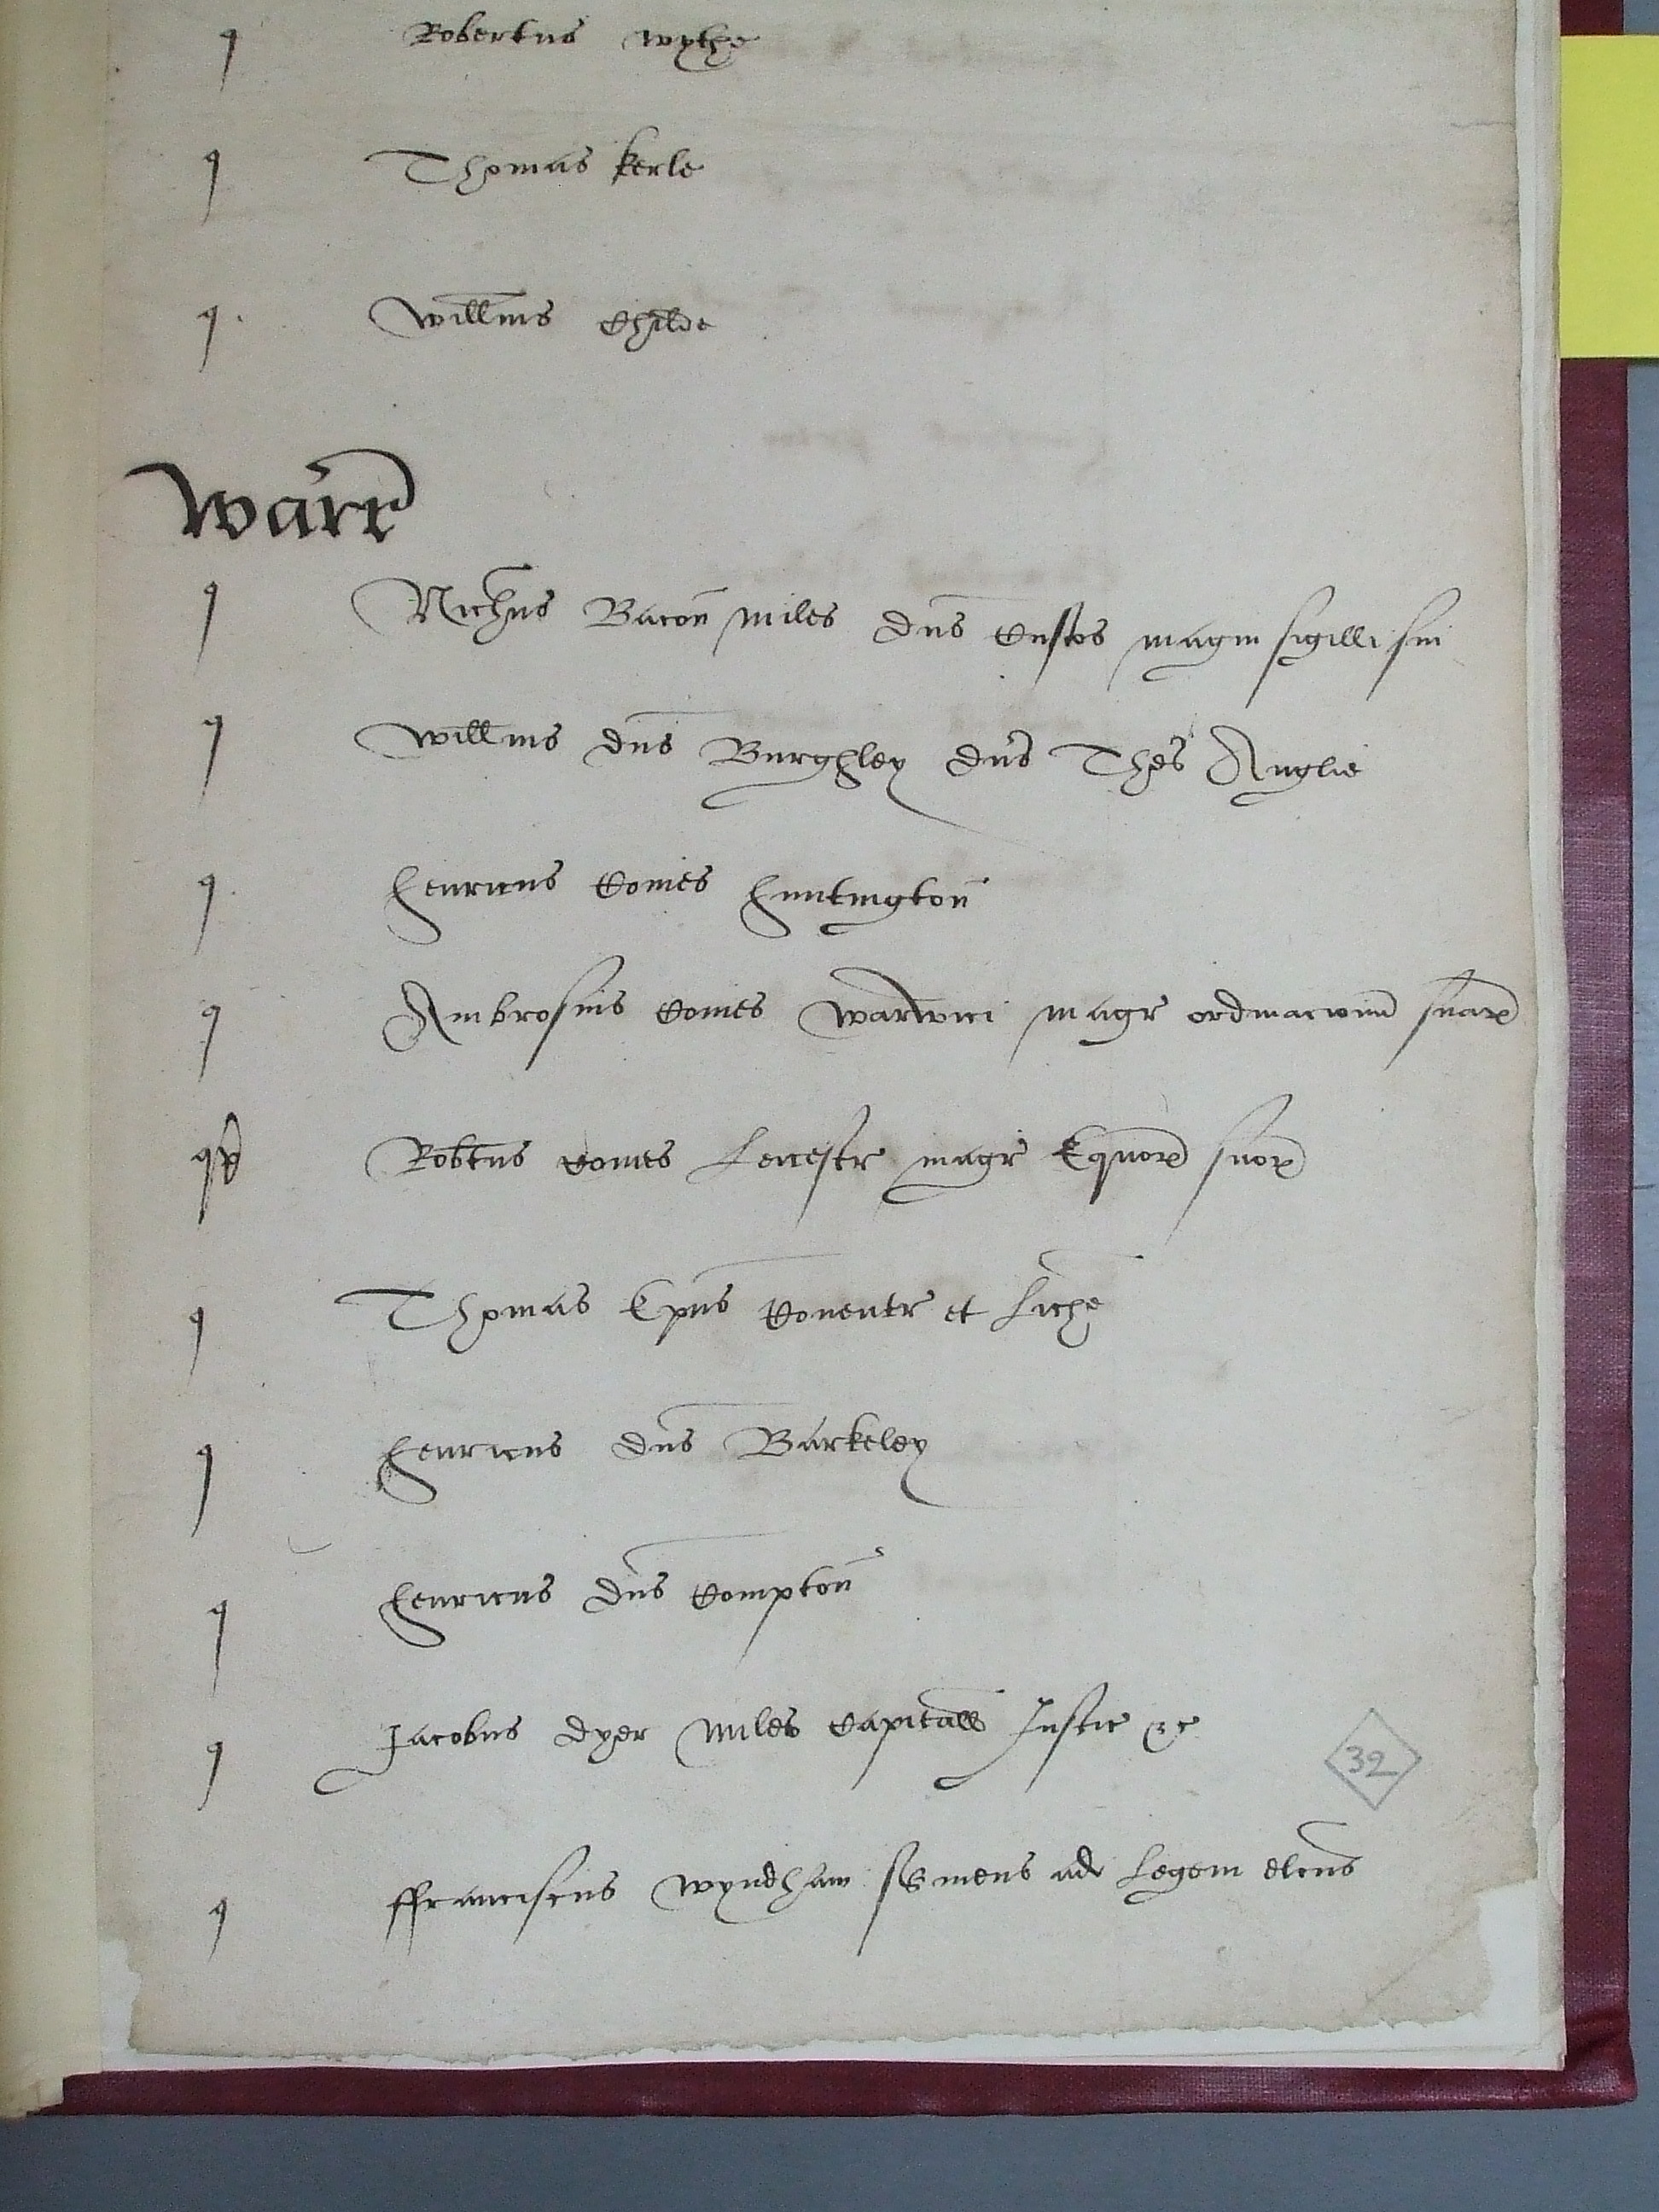 q Robertus wythe
q Thomas kerle
q. Willms Childe
Warr
q Nichus Bacon miles dns Custos magni sigilli sui
q Willms dns Burghley dns Thes Anglie
q. Henricus Comes Huntington
q Ambrosius Comes Warwici magr ordinacionu suar
Robtus Comes Leicestr magr Equor suor
q Thomas Epus Coventr et Liche
q Henricus dns Barkeley
q Henricus dns Compton
q Jacobus dyer miles Capitall Justic &c
32
q ffranciscus wyndham ad legem